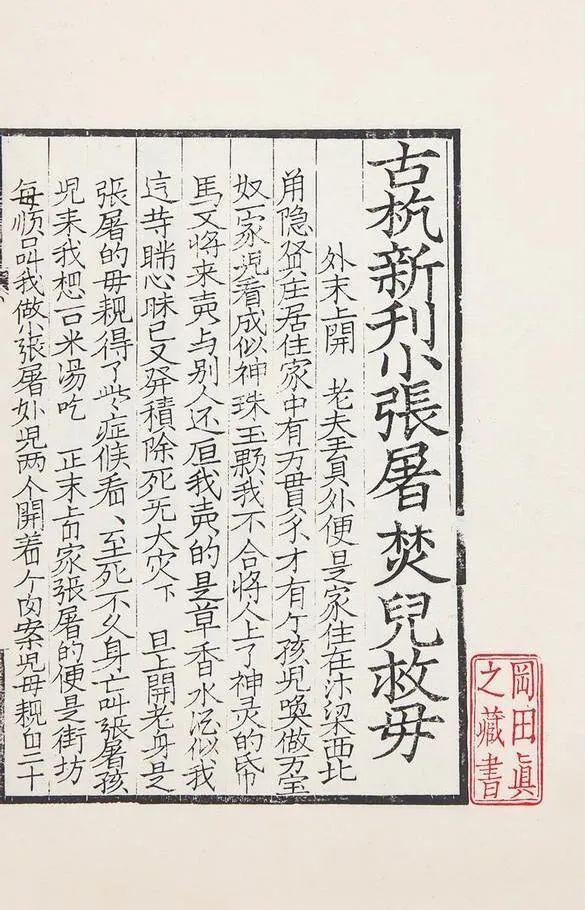 古杭新刊小張屠焚兒救毋
外末上開 老夫王員外便是家住在汴梁西北
角隐贤庄居住家中有万貫家才有个孩児喚做万宝
奴一家児看成似神珠玉顆我不合將人上了神灵的帋
馬又将来卖与别人还愿我卖的是草香水酒似我
這等瞒心昧己又発積除死无大灾下 旦上開老身是
張屠的毋親得了些症候看〻至死不久身亡叫張屠孩
児来我想一口米湯吃 正末上自家張屠的便是街坊
每順口叫我做小張屠 児两个開着个肉案児毋親自二十
岡田眞
之藏書